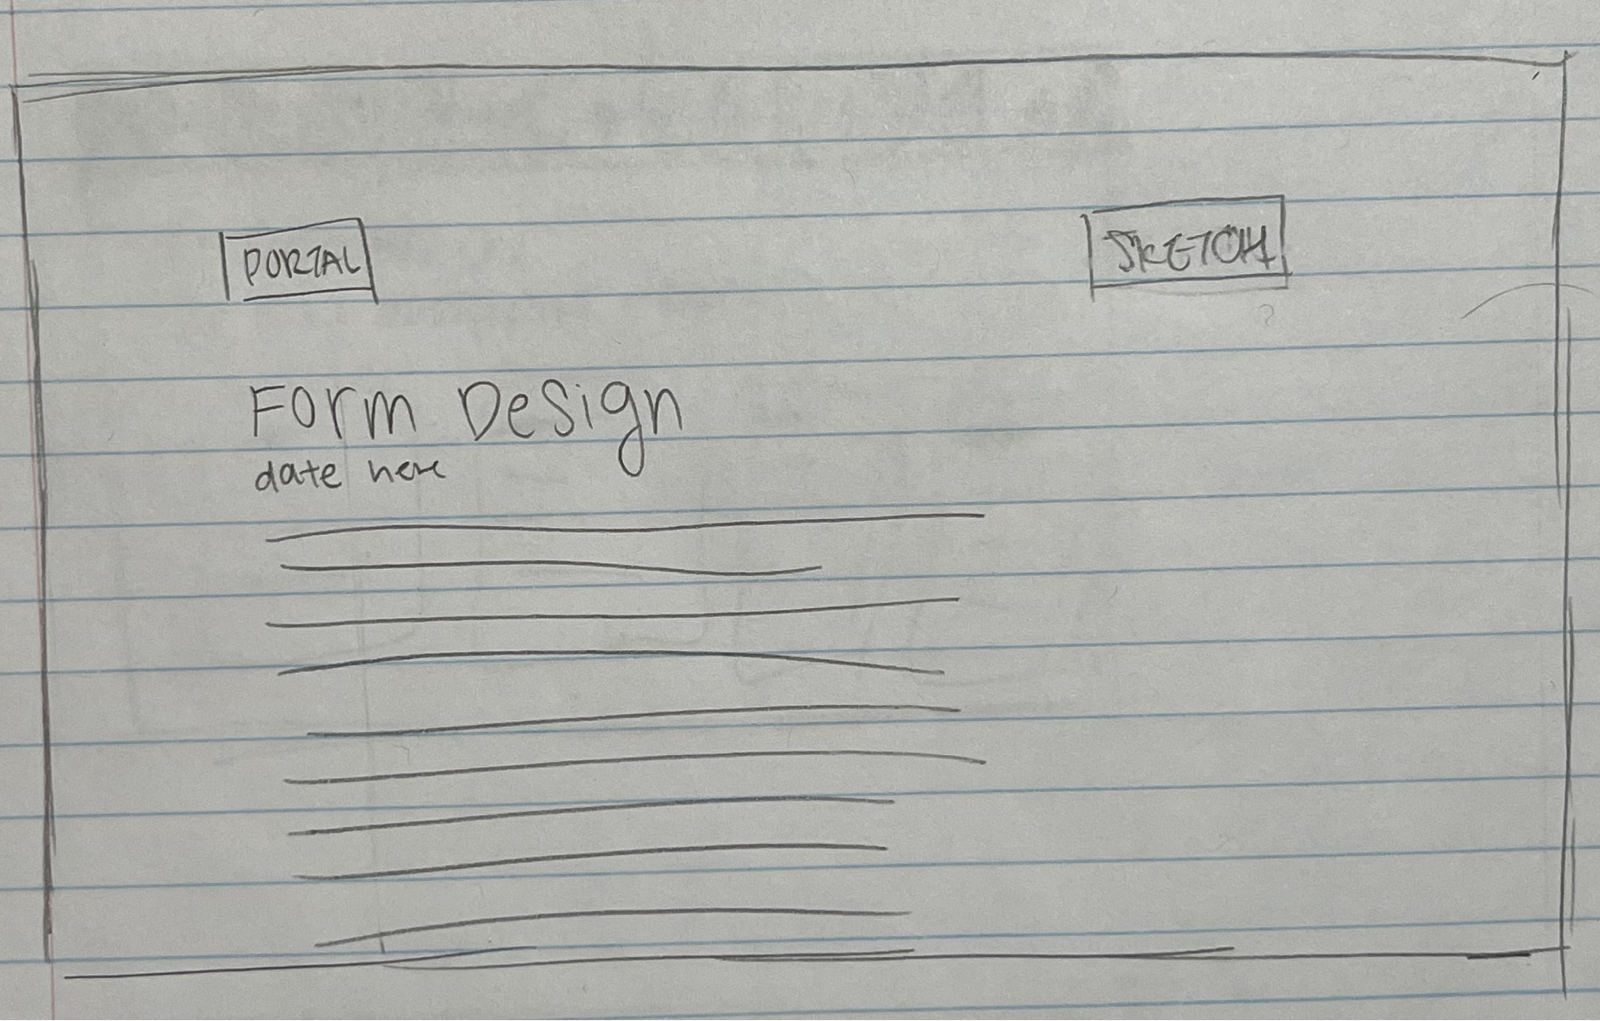 PORTAL
SKETCH
Form Design
date here